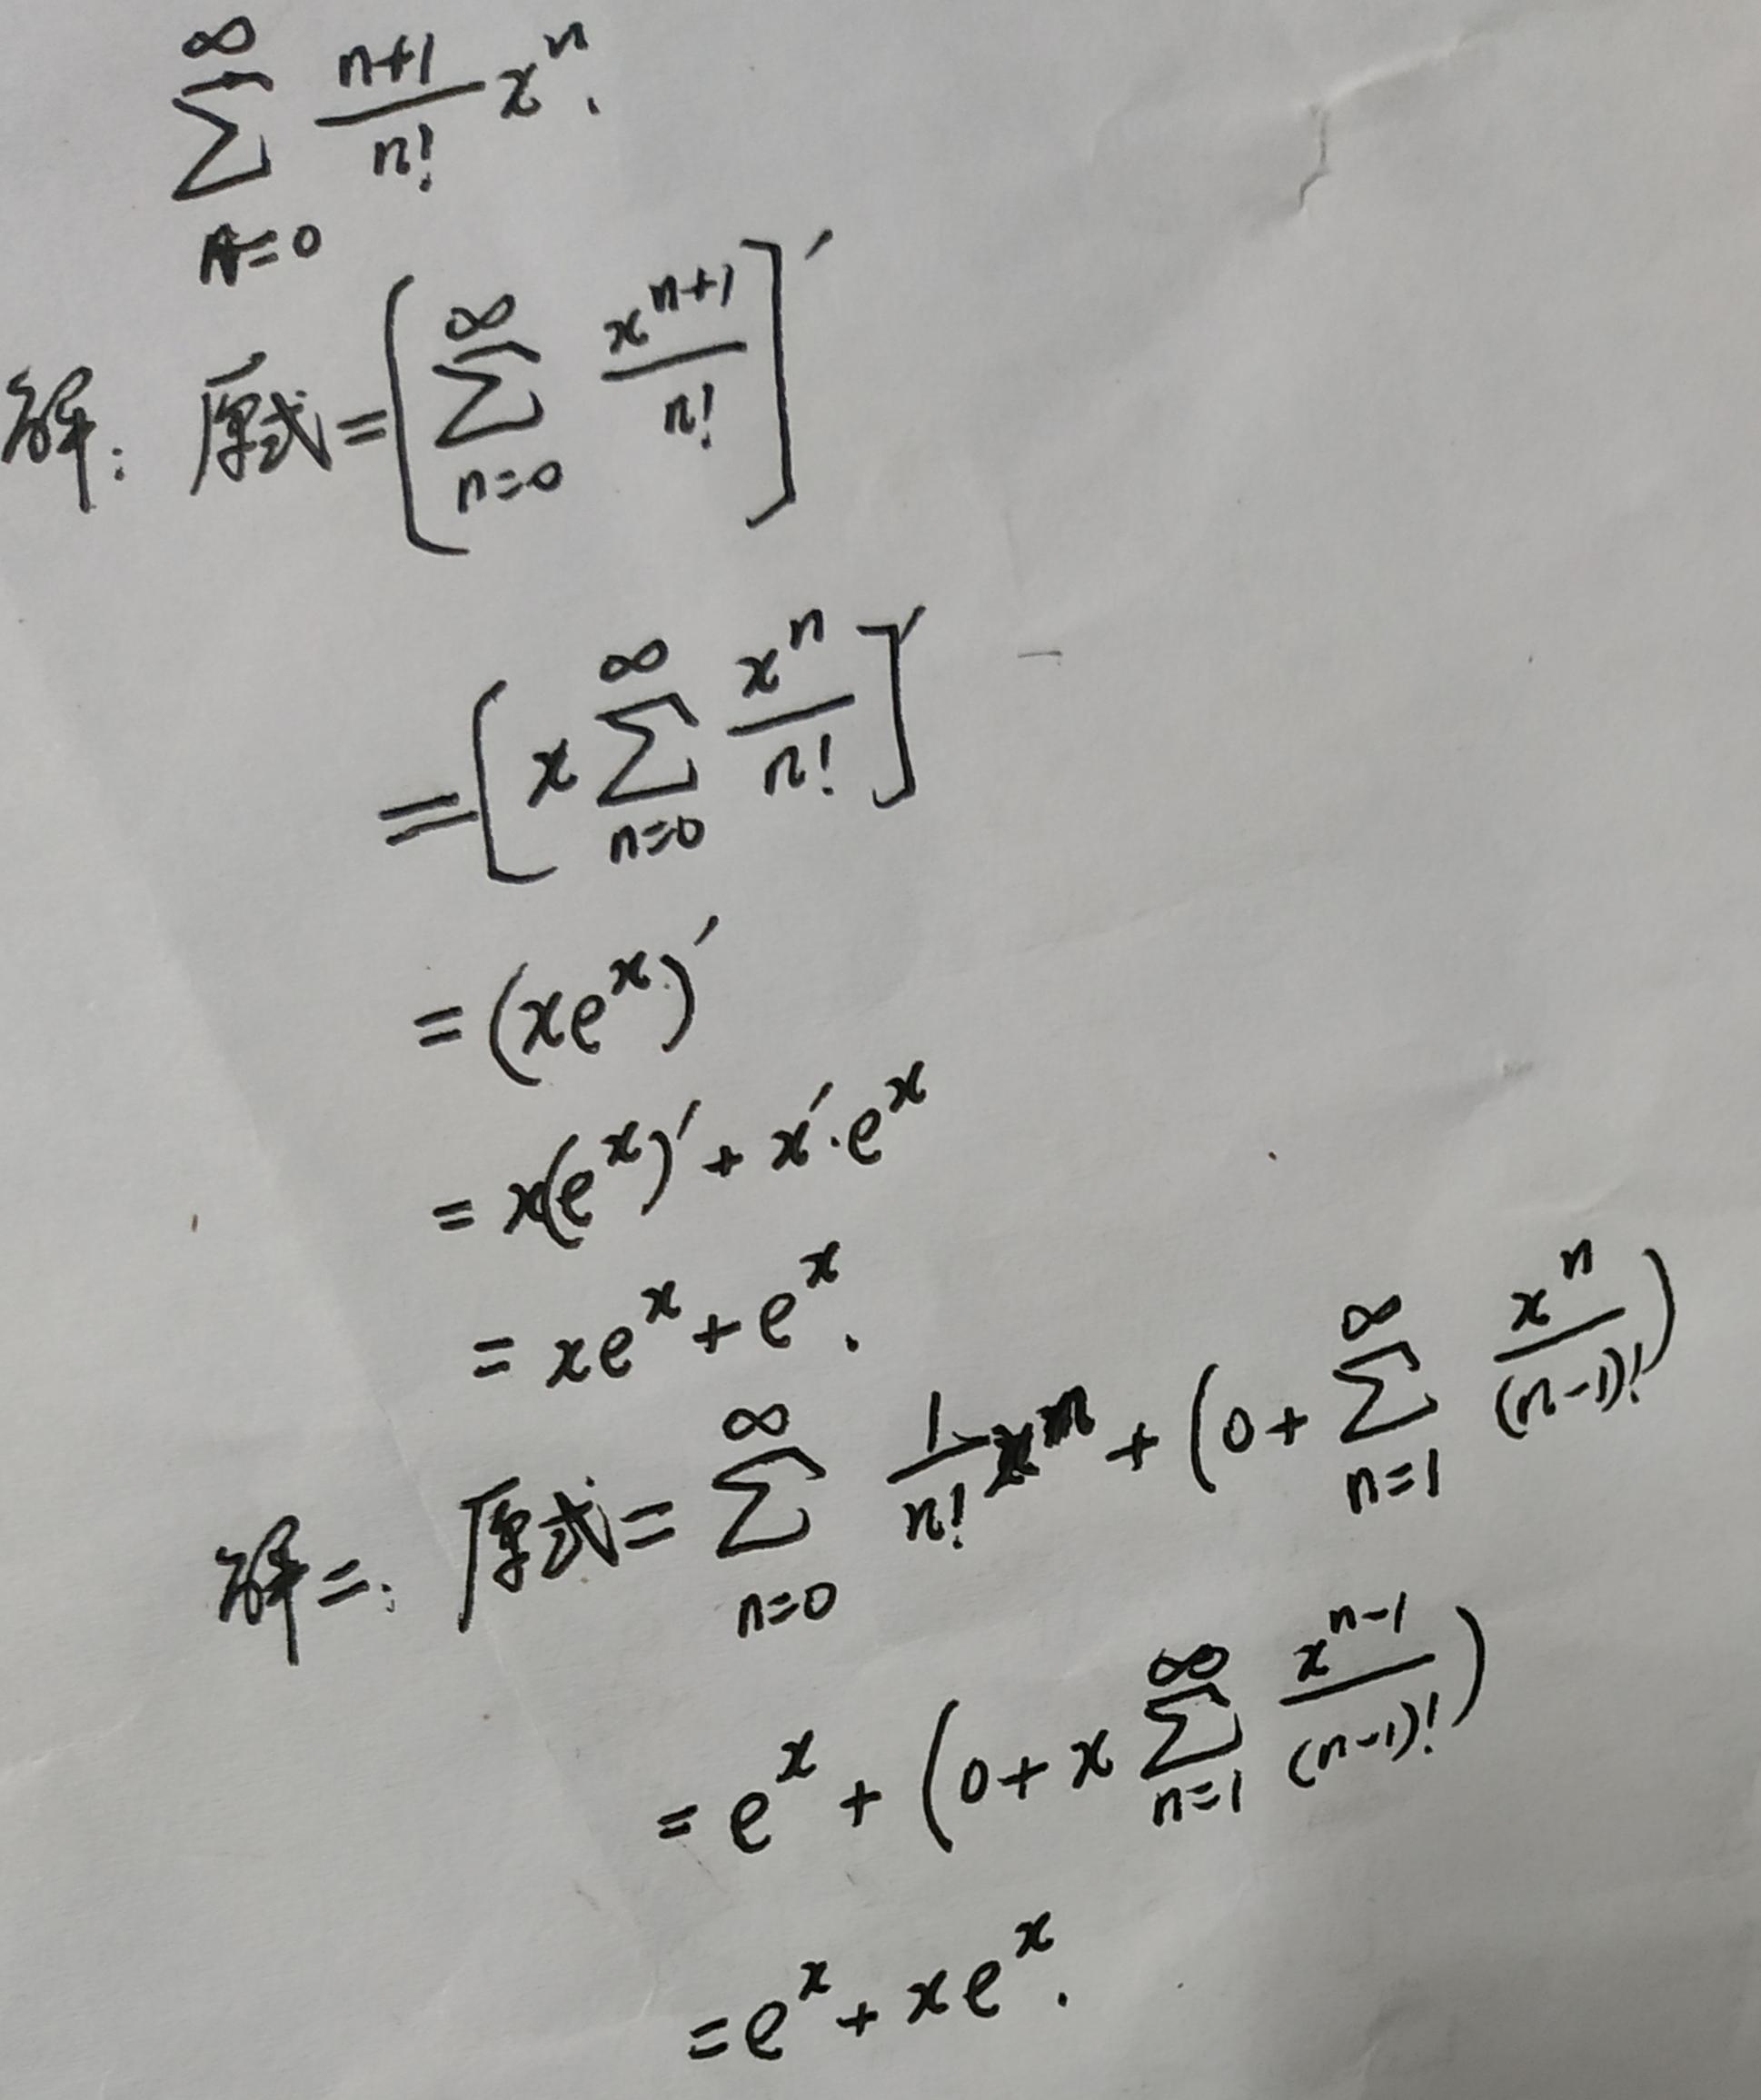 $\sum_{n=0}^{\infty} \frac{n+1}{n!} x^n.$
解: 原式 $= \left[ \sum_{n=0}^{\infty} \frac{x^{n+1}}{n!} \right]'$
$= \left[ x \sum_{n=0}^{\infty} \frac{x^n}{n!} \right]'$
$= (xe^x)'$
$= x(e^x)' + x' \cdot e^x$
$= xe^x + e^x.$
解二: 原式 $= \sum_{n=0}^{\infty} \frac{1}{n!} x^n + \left( 0 + \sum_{n=1}^{\infty} \frac{x^n}{(n-1)!} \right)$
$= e^x + \left( 0 + x \sum_{n=1}^{\infty} \frac{x^{n-1}}{(n-1)!} \right)$
$= e^x + xe^x.$